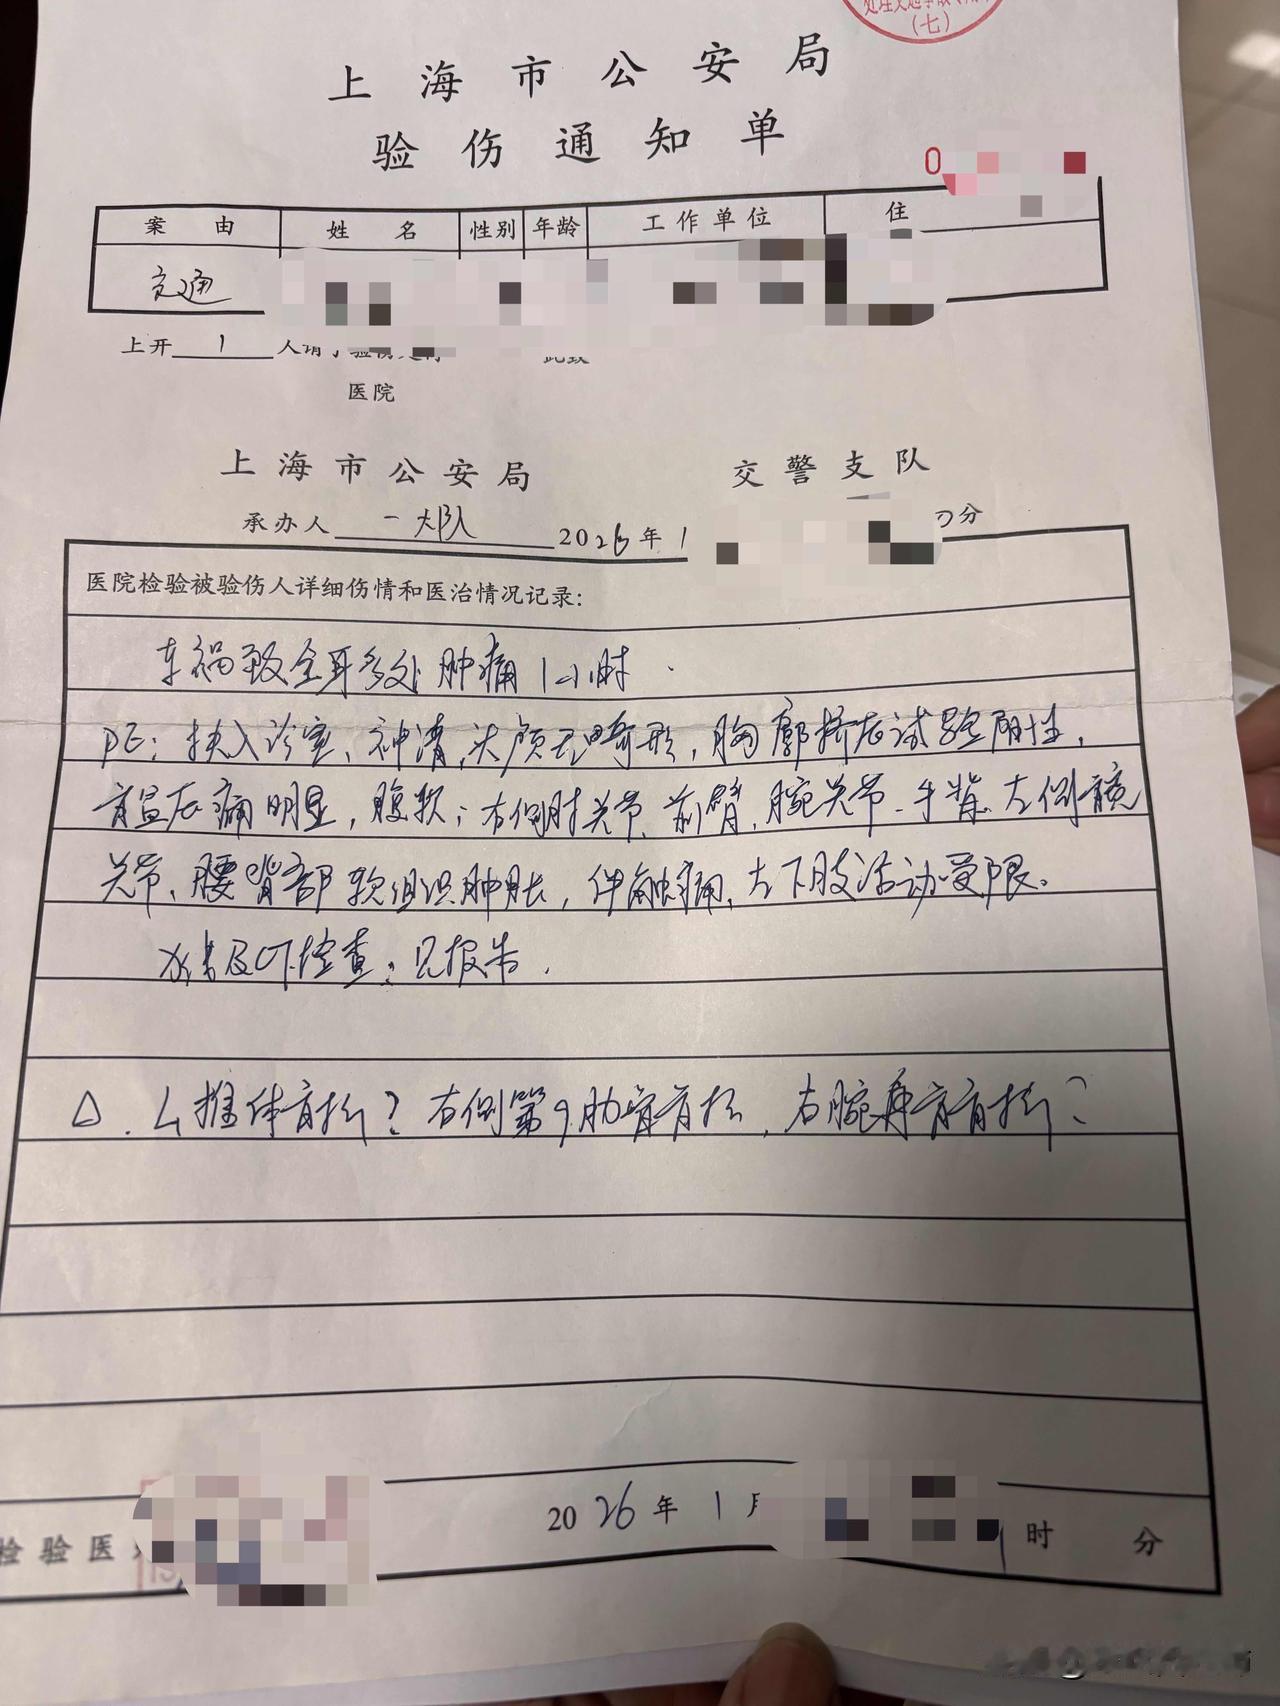 （七）
上海市公安局
验伤通知单
0
案由 姓名 性别 年龄 工作单位 住
交通
上开 1 人请予验伤
医院
上海市公安局 交警支队
承办人 一大队 2026年1 分
医院检验被验伤人详细伤情和医治情况记录:
车祸致全身多处肿痛1小时.
PE: 扶入诊室、神清,头颅无畸形,胸廓挤压试验阴性,
盲区压痛明显,腹软;右侧肘关节、前臂、腕关节、手背、左侧髋
关节、腰背部软组织肿胀,伴触痛,左下肢活动受限。
及CT检查:见报告.
△. 椎体骨折?右侧第9肋骨骨折,右腕舟骨骨折?
检验医 2026年1月 时 分